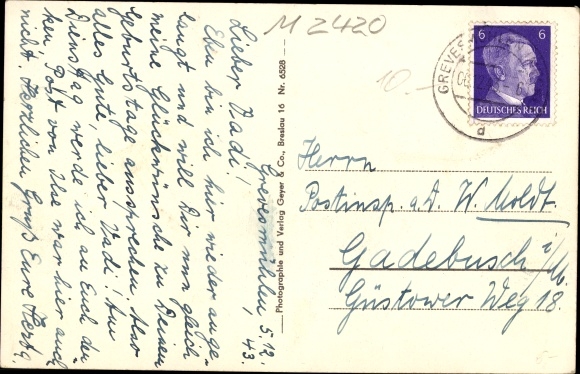 M 2420
10.-
Grevesmühlen 5.12.
43.
Lieber Vadi!
Eben bin ich hier wieder ange-
langt und will Dir nun gleich
meine Glückwünsche zu Deinem
Geburtstage aussprechen. Also
alles Gute, lieber Vadi! Am
Dienstag werde ich an Euch den-
ken. Post von Ilse war hier auch
nicht. Herzlichen Gruß Eure
Photographie und Verlag Geyer & Co., Breslau 16 Nr. 6528
GREVES
d
6 6
DEUTSCHES REICH
Herrn
Postinsp. a.D. W. Moldt.
Gadebusch i/M.
Güstower Weg 18.
6-